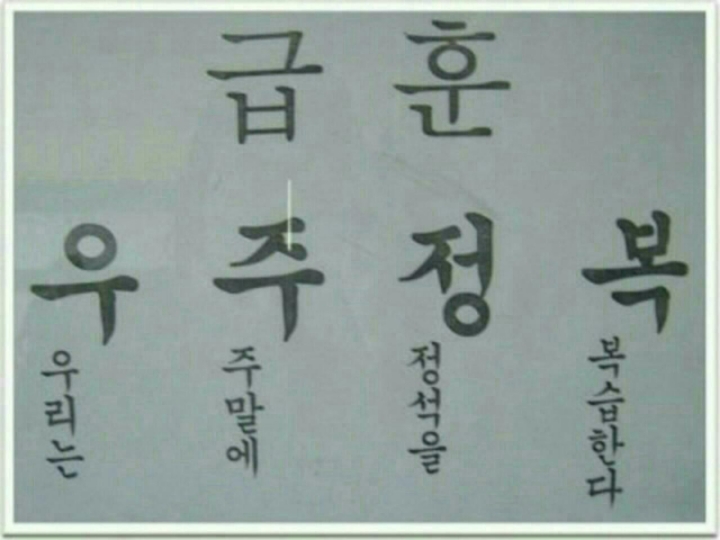 급훈
우주정복
우리는
주말에
정석을
복습한다